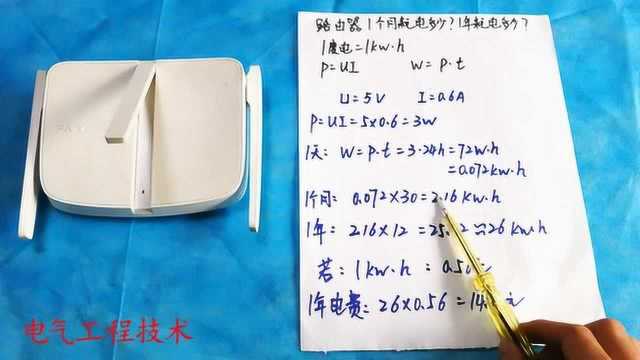 路由器1个月耗电多少?1年耗电多少?
1度电=1kw·h
P=UI W=P·t
U=5V I=0.6A
P=UI=5×0.6=3W
1天: W=P·t=3·24h=72W·h
=0.072kw·h
1个月: 0.072×30=2.16kw·h
1年: 2.16×12=25.2≈26kw·h
若: 1kw·h=0.56
1年电费: 26×0.56=14.
电气工程技术